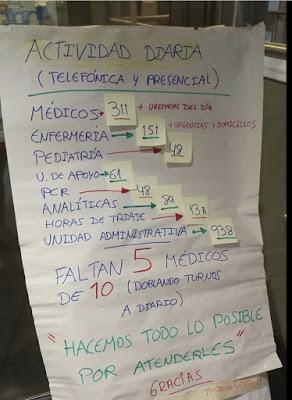 ACTIVIDAD DIARIA
(TELEFÓNICA Y PRESENCIAL)
MÉDICOS → 311 + URGENCIAS DEL DÍA
ENFERMERÍA → 151 + URGENCIAS Y DOMICILIOS
PEDIATRÍA → 48
U. DE APOYO → 61
PCR → 48
ANALÍTICAS → 89
HORAS DE TRIAJE → 13 h
UNIDAD ADMINISTRATIVA → 938
FALTAN 5 MÉDICOS
DE 10 (DOBLANDO TURNOS
A DIARIO)
"HACEMOS TODO LO POSIBLE
POR ATENDERLES"
GRACIAS